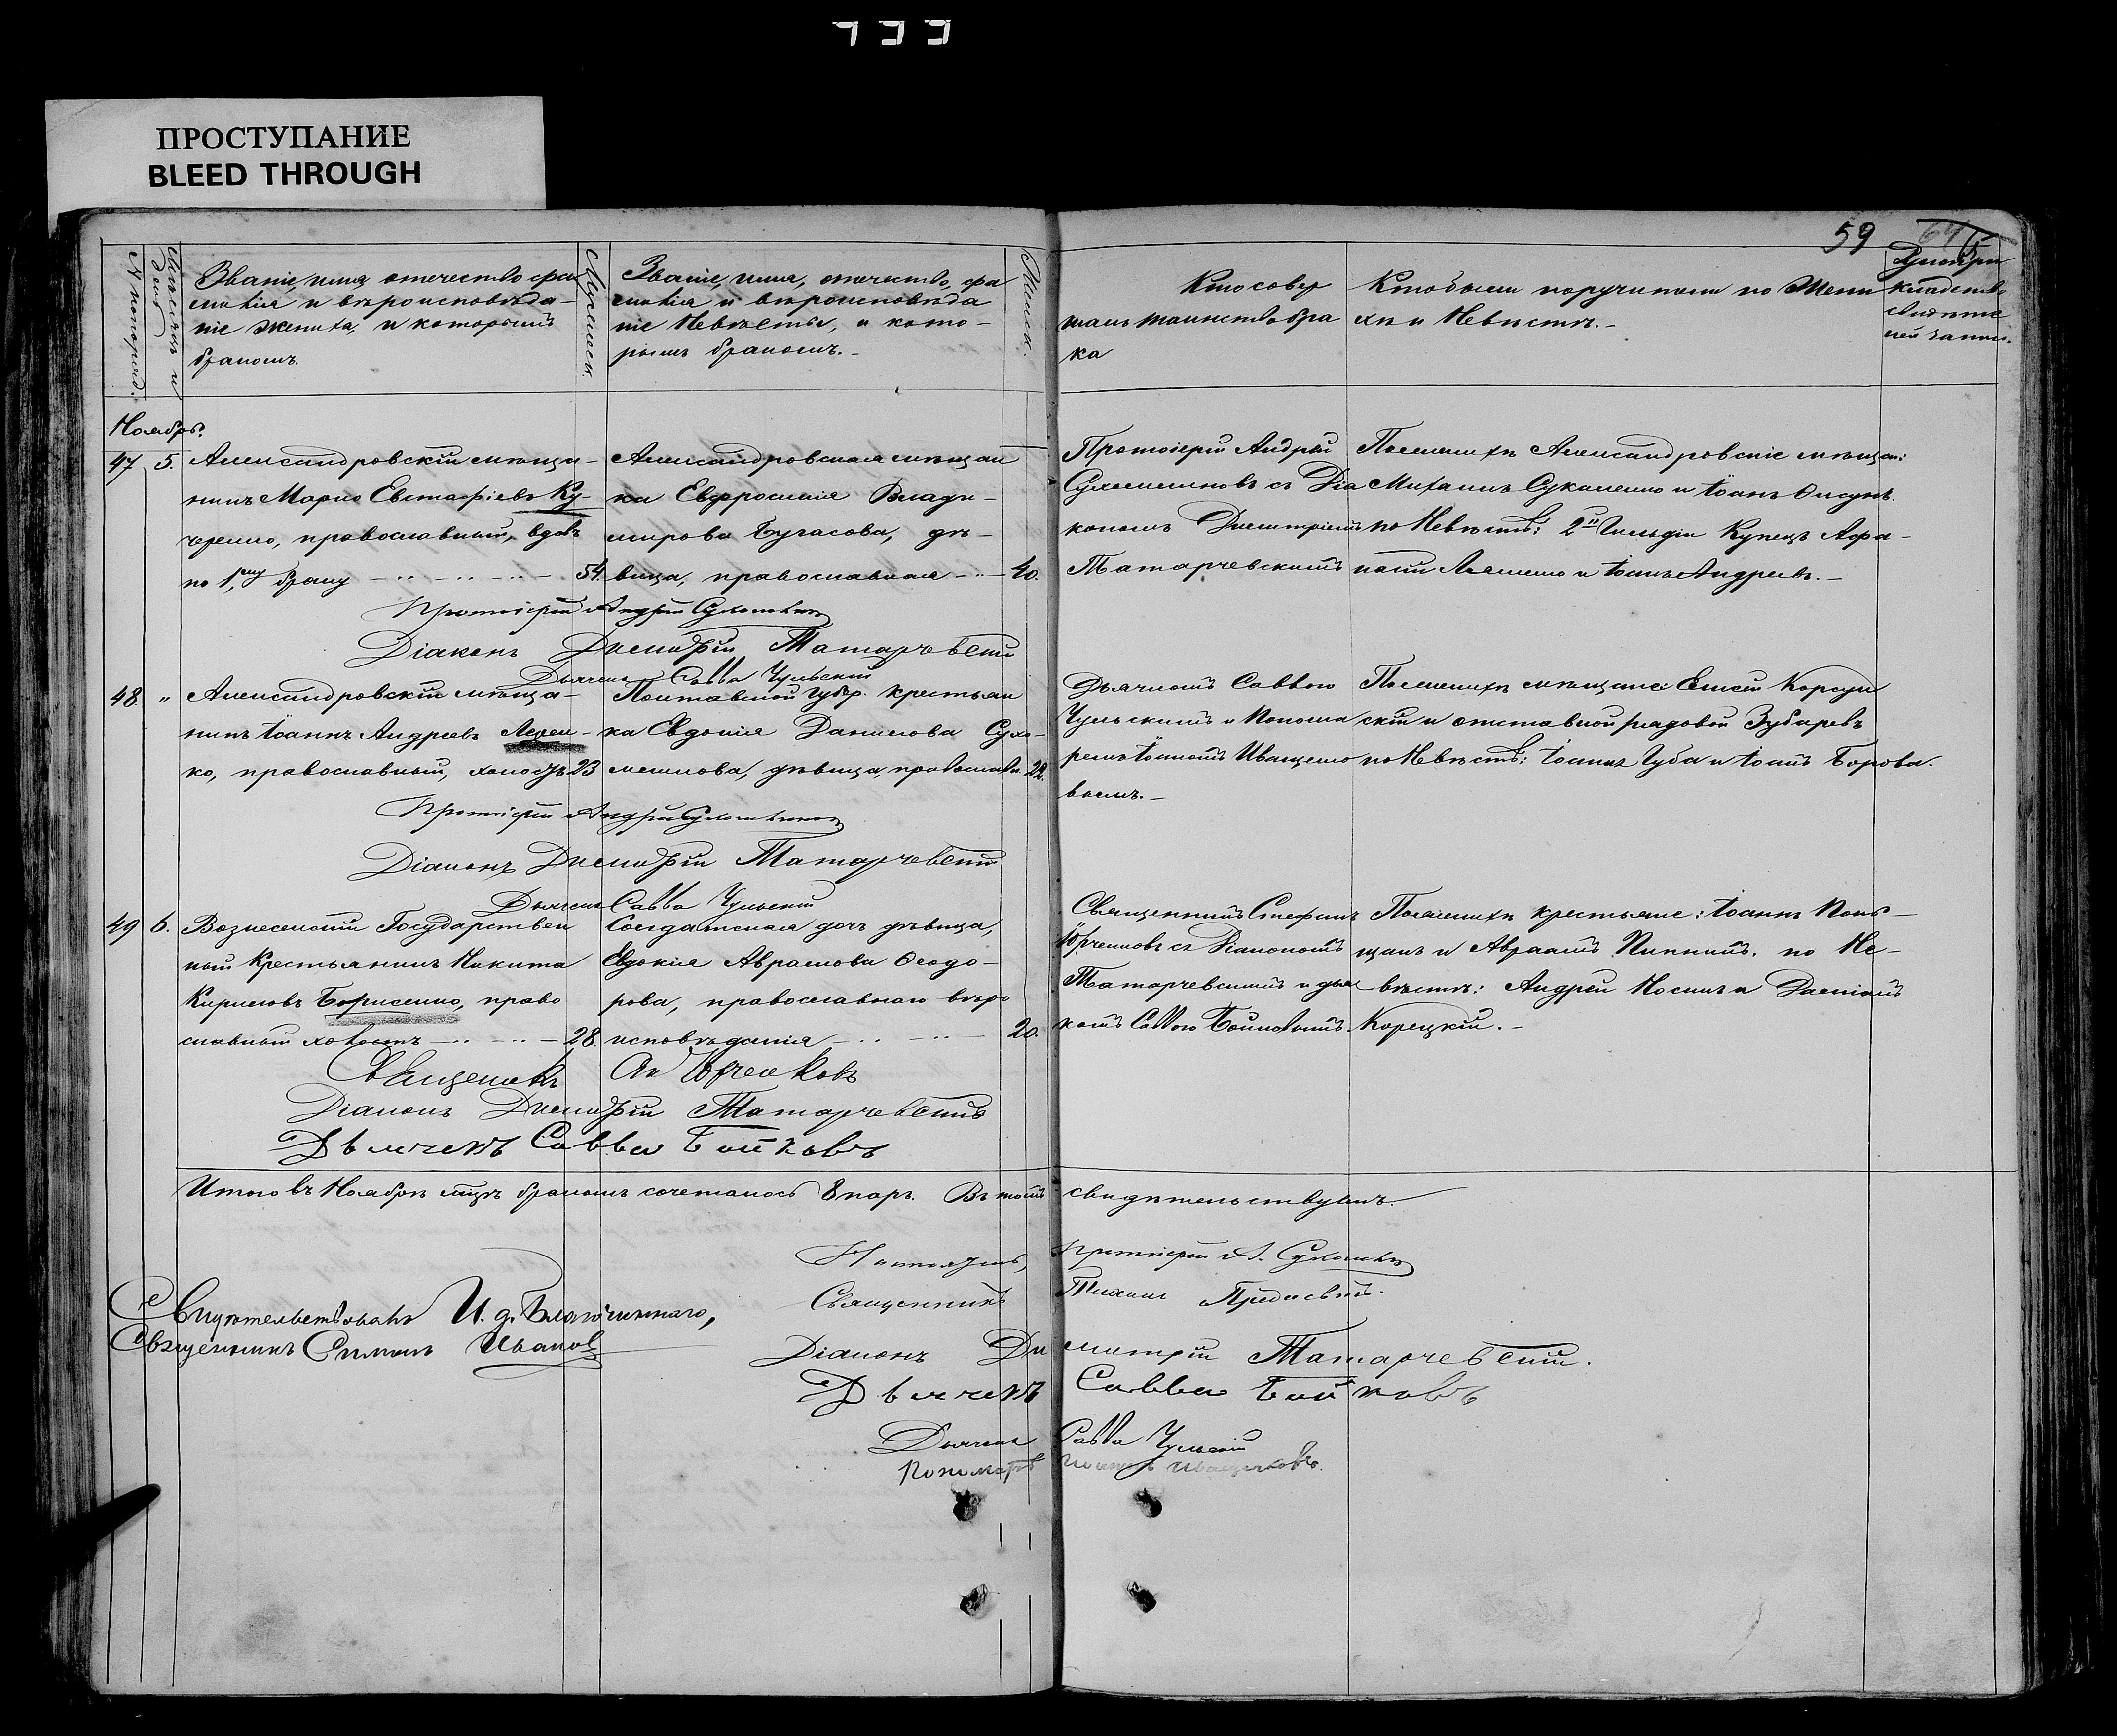 733
ПРОСТУПАНИЕ
BLEED THROUGH
59
№ попоряд.
Мѣсяцъ и день
Званіе, имя отечество фа
милія и вѣроисповѣда-
ніе жениха, и которымъ
бракомъ.
Лѣта
Званіе, имя, отечество, фа
милія и вѣроисповѣда
ніе Невѣсты, и кото-
рымъ бракомъ.-
Кто совер
шалъ таинство бра
ка
Кто были поручители по Жени
хѣ и Невѣстѣ.-
Ноябрь.
47 5. Александровскій мѣща-
нинъ Марко Евстафіевъ Ку-
черенко, православный, вдовъ
по 1,му браку 54.
Александровская мѣщан
ка Евфросинія Влади-
мирова Бугасова, дѣ-
вица, православная 40.
Протоіерей Андрей
Сухомлиновъ съ Діа
кономъ Димитріемъ
Татарчевскимъ
По Женихѣ Александровскіе мѣщан:
Михаилъ Сукаленко и Іоаннъ
по Невѣстѣ: 2й Гильдіи Купецъ Афа-
насій Ляшенко и Іоаннъ Андреевъ.-
Протоіерей Андрей Сухомлинов
Діаконъ Димитрій Татарчевскій
Дьячекъ Савва Чульскій
48. " Александровскій мѣща-
нинъ Іоаннъ Андреевъ
ко, православный, холостъ 23
Полтавской Губер. крестьян
ка Евдокія Данилова Сухо-
млинова, дѣвица, православн. 22.
Дьячкомъ Саввою
Чульскимъ и Понома
ремъ Іоанномъ Иващенко
вымъ.-
По Женихѣ мѣщане: Елисей Корсун
скій и отставной рядовой Зубаревъ
по Невѣстѣ: Іоаннъ Губа и Іоаннъ
Протоіерей Андрей Сухомлинов
Діаконъ Димитрій Татарчевскій
Дьячекъ Савва Чульскій
49 6. Вознесенскій Государствен
ный Крестьянинъ Никита
Кириловъ Борисенко, право
славный холостъ 28.
Солдатская дочь дѣвица,
Евдокія Авраамова Ѳеодо-
рова, православнаго вѣро
исповѣданія 20.
Священникъ Стефанъ
Юрченковъ съ Діакономъ
Татарчевскимъ и дья
комъ Саввою Бойковымъ.
По Женихѣ крестьяне: Іоаннъ
и Авраамъ. по Не-
вѣстѣ: Андрей Носикъ и Даміанъ
Корецкій.-
Священникъ Юрченковъ
Діаконъ Димитрій Татарчевскій
Дьячекъ Савва Бойковъ
Итого въ Ноябрѣ мцѣ бракомъ сочеталось 8 паръ. Въ томъ свидѣтельствуемъ.
Настоятель, протоіерей А. Сухомлин
Священникъ
Діаконъ Димитрій Татарчевскій.
Дьячекъ Савва Бойковъ
Дьячекъ Савва Чульскій
Пономарь Иващенковъ.
Свидѣтельствовалъ И. д. Благочиннаго,
Священникъ Симеонъ Иванов